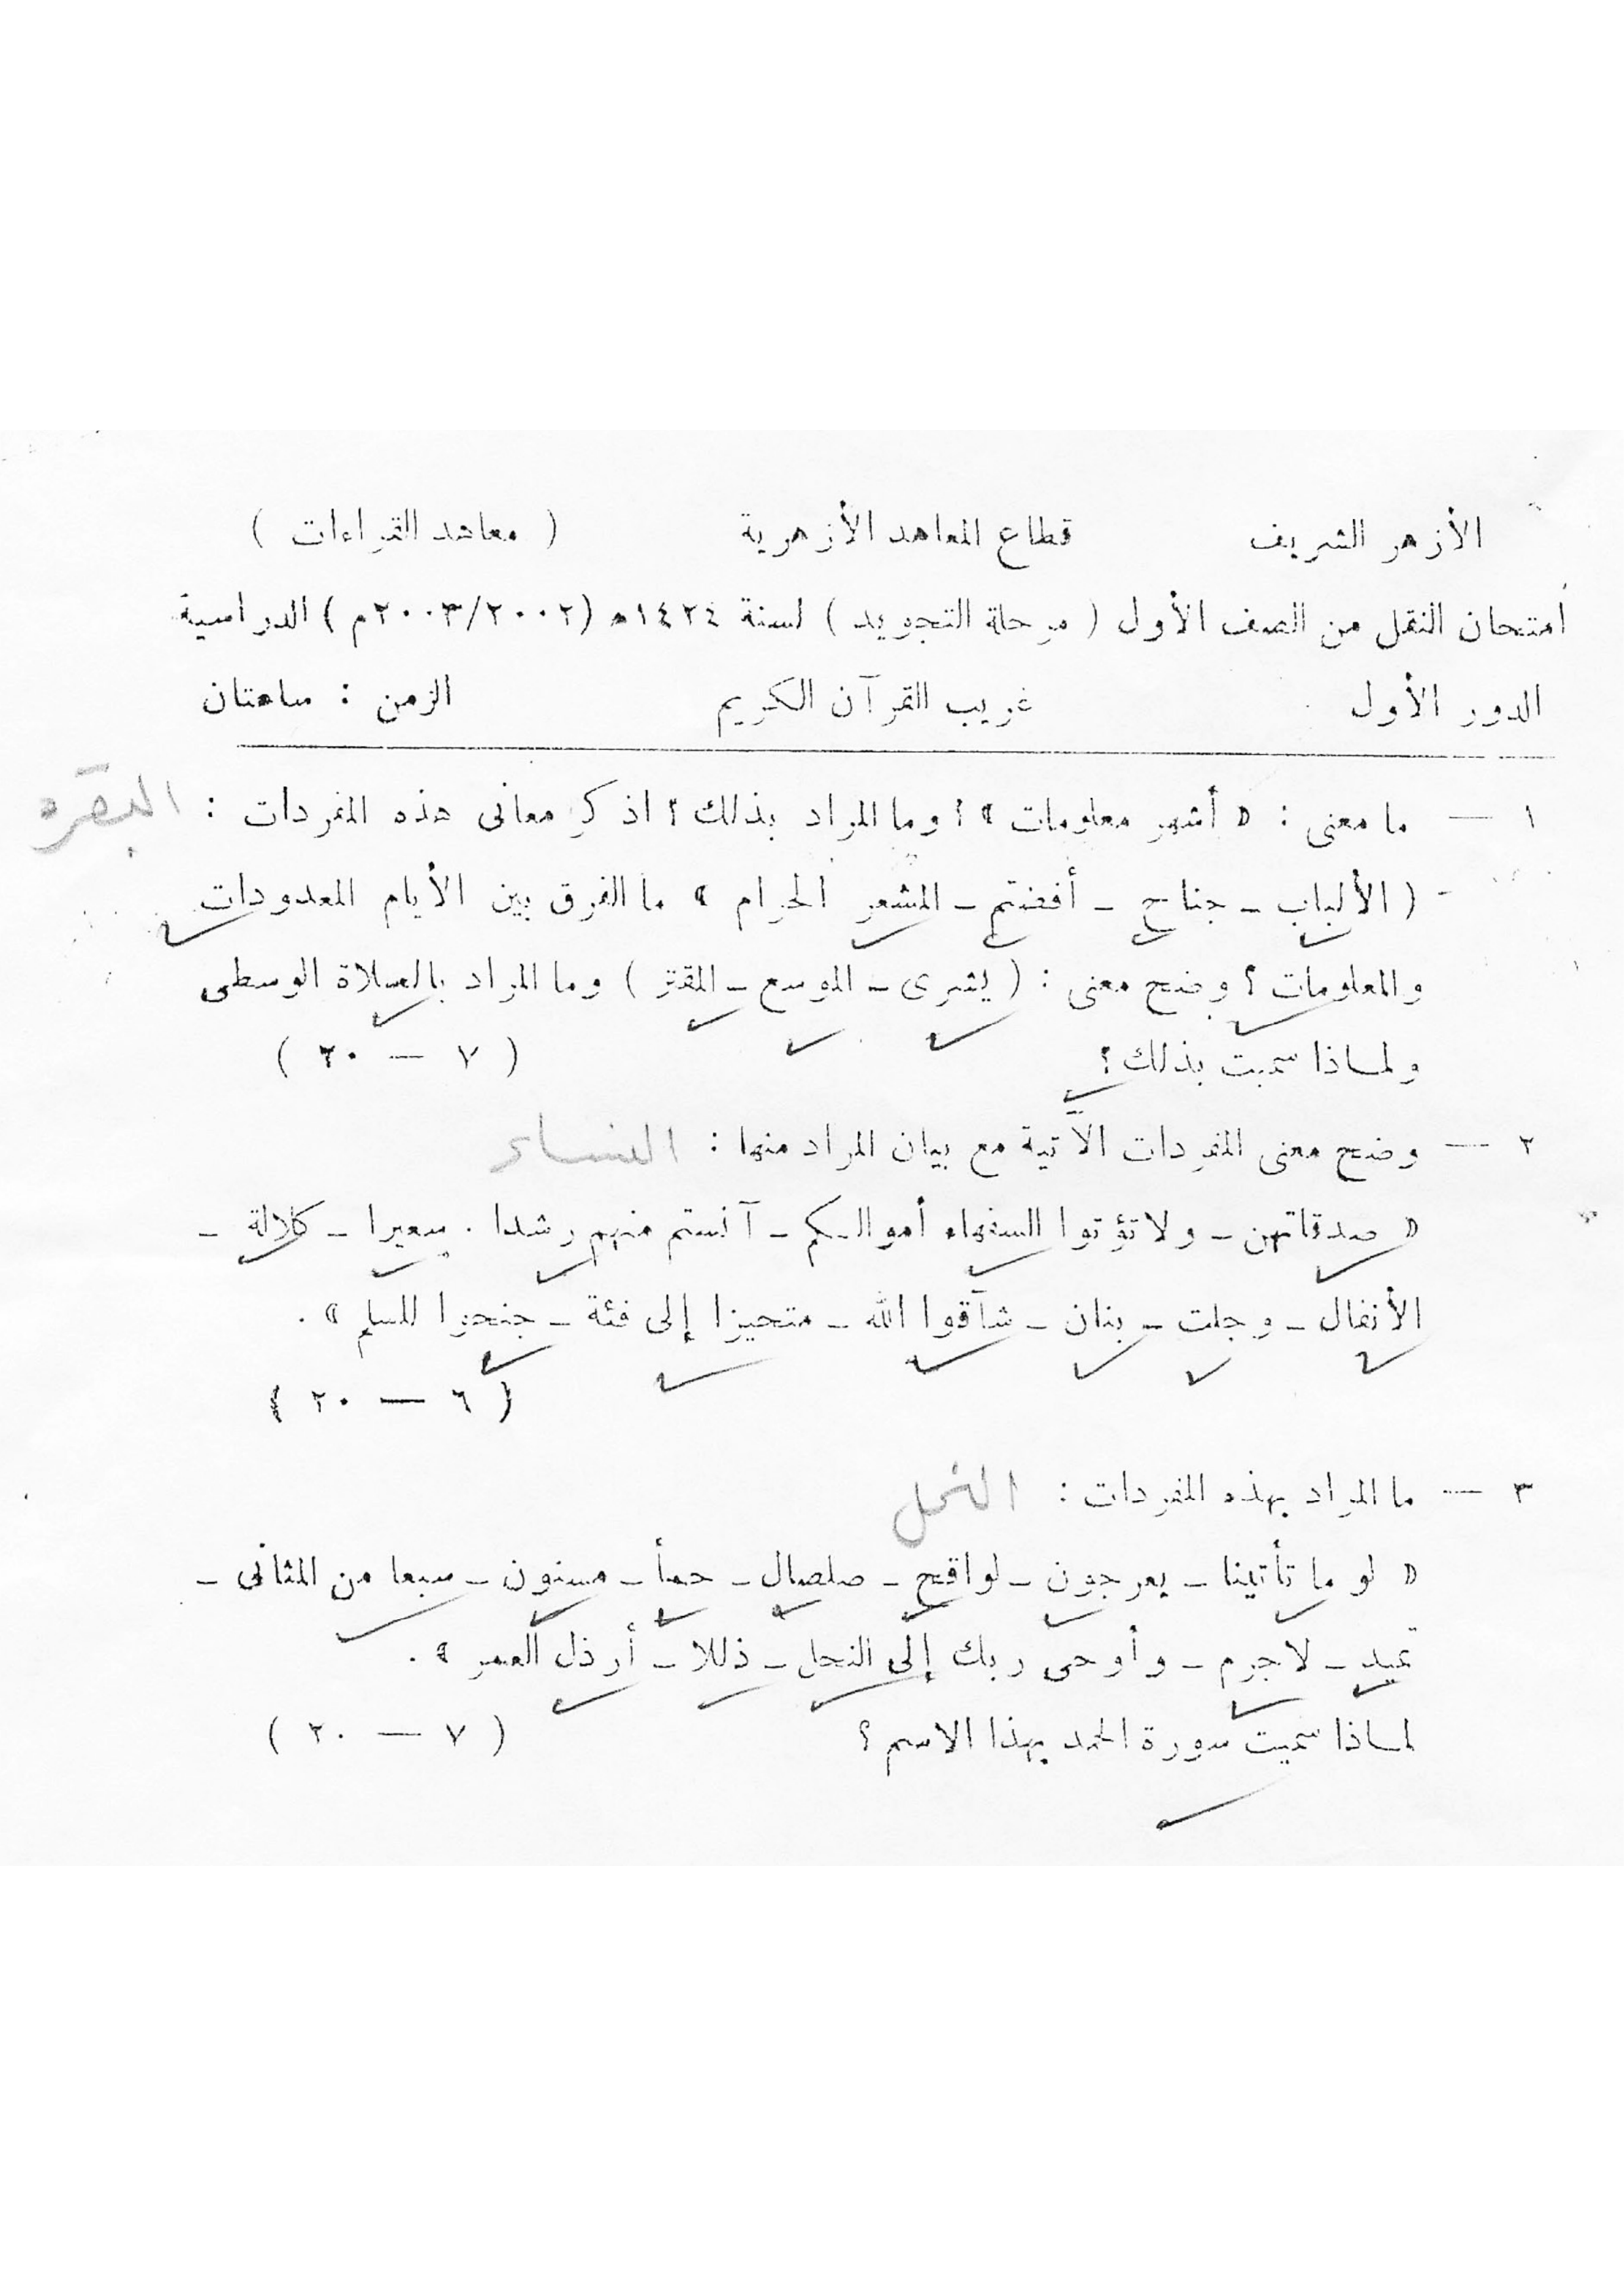 الأزهر الشريف قطاع المعاهد الأزهرية ( معاهد القراءات )
امتحان النقل من الصف الأول ( مرحلة التجويد ) لسنة ١٤٢٤ه (٢٠٠٣/٢٠٠٢م ) الدراسية
الدور الأول غريب القرآن الكريم الزمن : ساعتان
١ — ما معنى : « أشهر معلومات » ؟ وما المراد بذلك ؟ اذكر معانى هذه المفردات : البقره
( الألباب - جناح - أفضتم - المشعر الحرام » ما الفرق بين الأيام المعدودات
والمعلومات ؟ وضح معنى : ( يشرى - الموسع - المقتر ) وما المراد بالصلاة الوسطى
ولماذا سميت بذلك ؟ ( ٧ — ٢٠ )
٢ — وضح معنى المفردات الآتية مع بيان المراد منها : النساء
« صدقاتهن - ولا تؤتوا السفهاء أموالكم - آنستم منهم رشدا . سعيرا - كلالة -
الأنفال - وجلت - بنان - شآقوا الله - متحيزا إلى فئة - جنحوا للسلم » .
( ٦ — ٢٠ )
٣ — ما المراد بهذه المفردات : النحل
« لو ما تأتينا - يعرجون - لواقح - صلصال - حمأ - مسنون - سبعا من المثانى -
تميد - لا جرم - وأوحى ربك إلى النحل - ذللا - أرذل العمر » .
لماذا سميت سورة الحمد بهذا الاسم ؟ ( ٧ — ٢٠ )